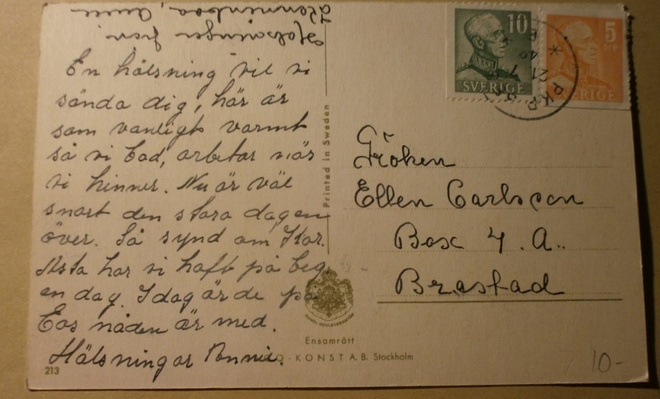 Hälsningar från
En hälsning vil vi
sända dig, här är
som vanligt varmt
så vi bad, arbetar när
vi hinner. Nu är väl
snart den stora dagen
över. Så synd om Kar.
Asta har vi haft på beg
en dag. Idag är de på
Eos nåden är med.
Hälsningar Annie.
213
Printed in Sweden
Ensamrätt
KONST A.B. Stockholm
10
SVERIGE
5
SVERIGE
21
Fröken
Ellen Carlsson
Box 4. A.
Brastad
10-